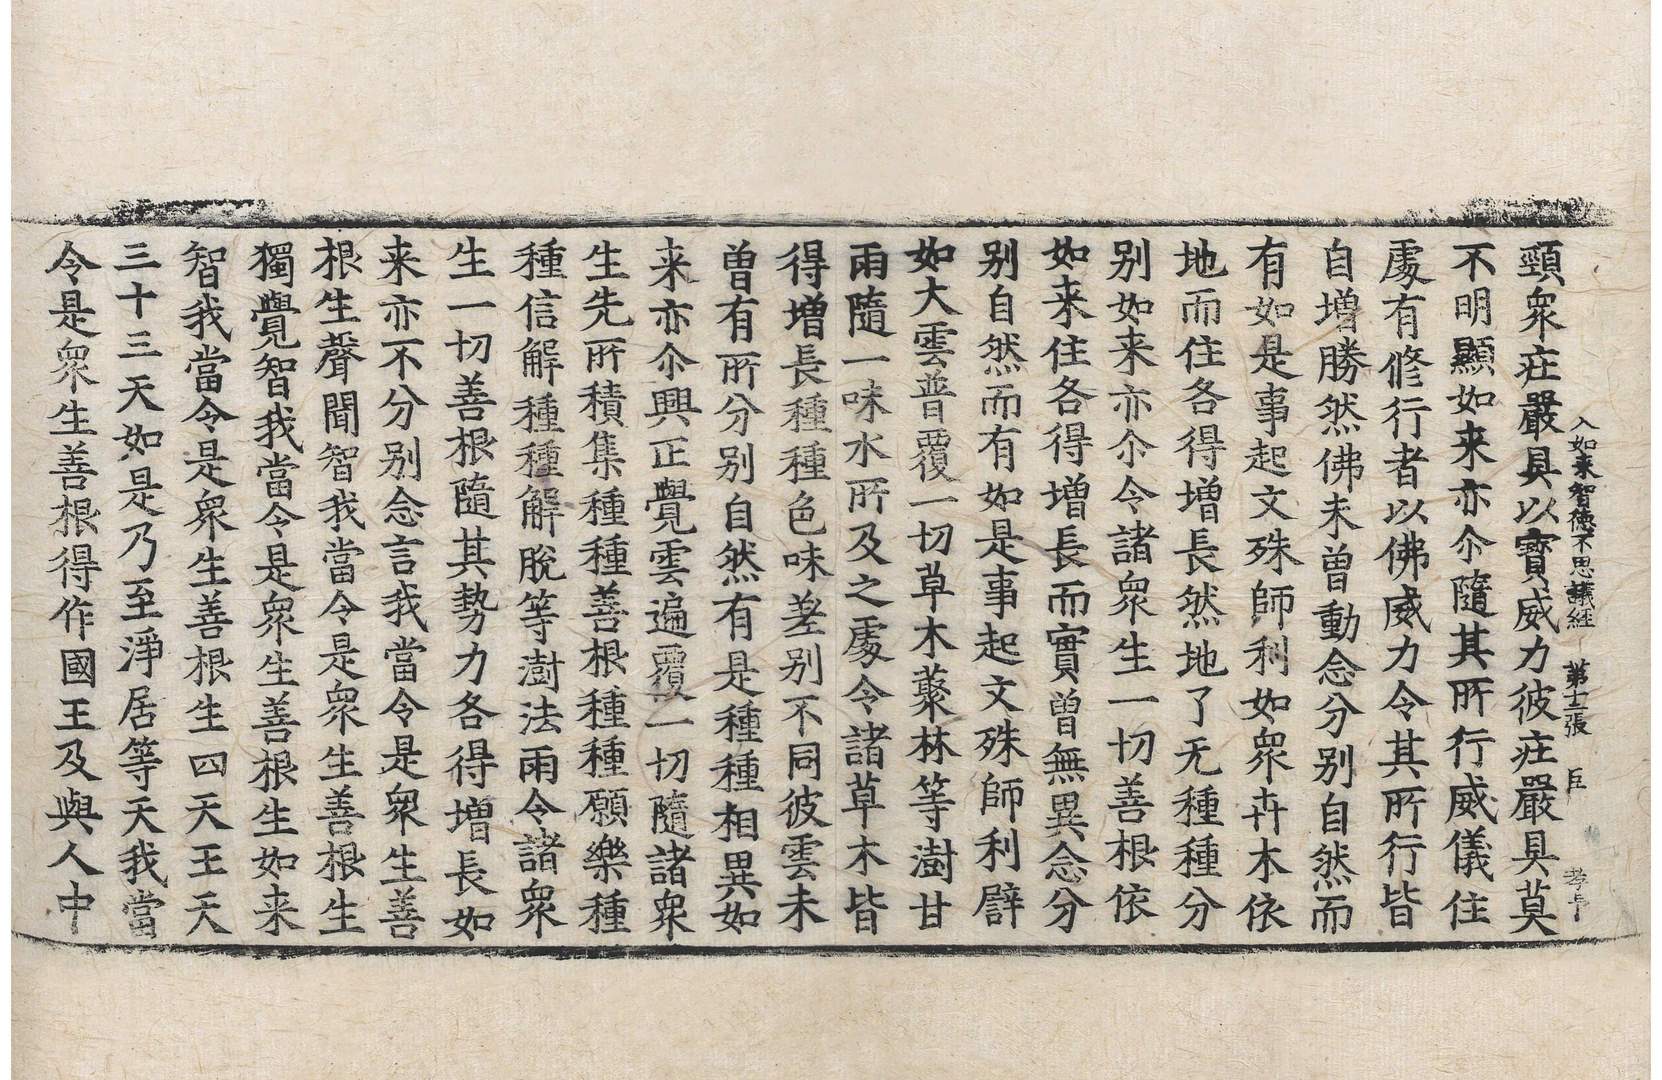 入如来智德不思議經 第十二張 巨
頸衆庄嚴具以寳威力彼庄嚴具莫
不明顯如来亦尒隨其所行威儀住
處有修行者以佛威力令其所行皆
自增勝然佛未曾動念分别自然而
有如是事起文殊師利如衆卉木依
地而住各得增長然地了无種種分
别如来亦尒令諸衆生一切善根依
如来住各得增長而實曾無異念分
别自然而有如是事起文殊師利譬
如大雲普覆一切草木藂林等澍甘
雨隨一味水所及之處令諸草木皆
得增長種種色味差别不同彼雲未
曾有所分别自然有是種種相異如
来亦尒興正覺雲遍覆一切隨諸衆
生先所積集種種善根種種願樂種
種信解種種解脫等澍法雨令諸衆
生一切善根隨其勢力各得增長如
来亦不分别念言我當令是衆生善
根生聲聞智我當令是衆生善根生
獨覺智我當令是衆生善根生如来
智我當令是衆生善根生四天王天
三十三天如是乃至淨居等天我當
令是衆生善根得作國王及與人中